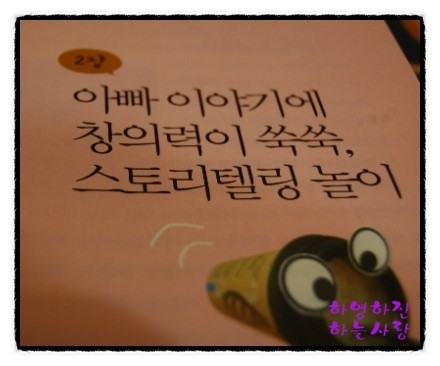 2장
아빠 이야기에
창의력이 쑥쑥,
스토리텔링 놀이
하영하진
하늘사랑